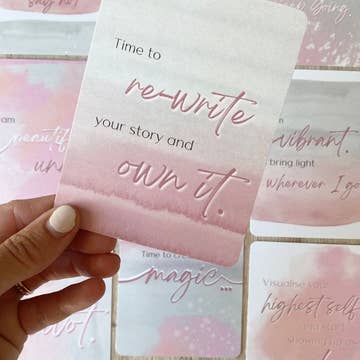 say no!
going.
Time to
re-write
your story and
own it.
am
beautiful
un
am
vibrant.
bring light
wherever I go
Time to
magic...
Visualise your
highest self